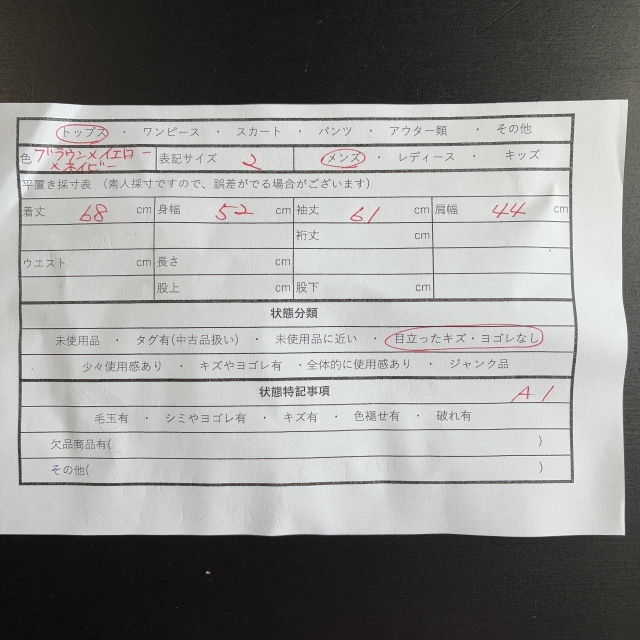 トップス ・ ワンピース ・ スカート ・ パンツ ・ アウター類 ・ その他
色 ブラウン×イエロー×ネイビー 表記サイズ 2 メンズ ・ レディース ・ キッズ
平置き採寸表 (素人採寸ですので、誤差がでる場合がございます)
着丈 68 cm 身幅 52 cm 袖丈 61 cm 肩幅 44 cm
裄丈 cm
ウエスト cm 長さ cm
股上 cm 股下 cm
状態分類
未使用品 ・ タグ有(中古品扱い) ・ 未使用品に近い ・ 目立ったキズ・ヨゴレなし
少々使用感あり ・ キズやヨゴレ有 ・全体的に使用感あり ・ ジャンク品
状態特記事項 A1
毛玉有 ・ シミやヨゴレ有 ・ キズ有 ・ 色褪せ有 ・ 破れ有
欠品商品有( )
その他( )